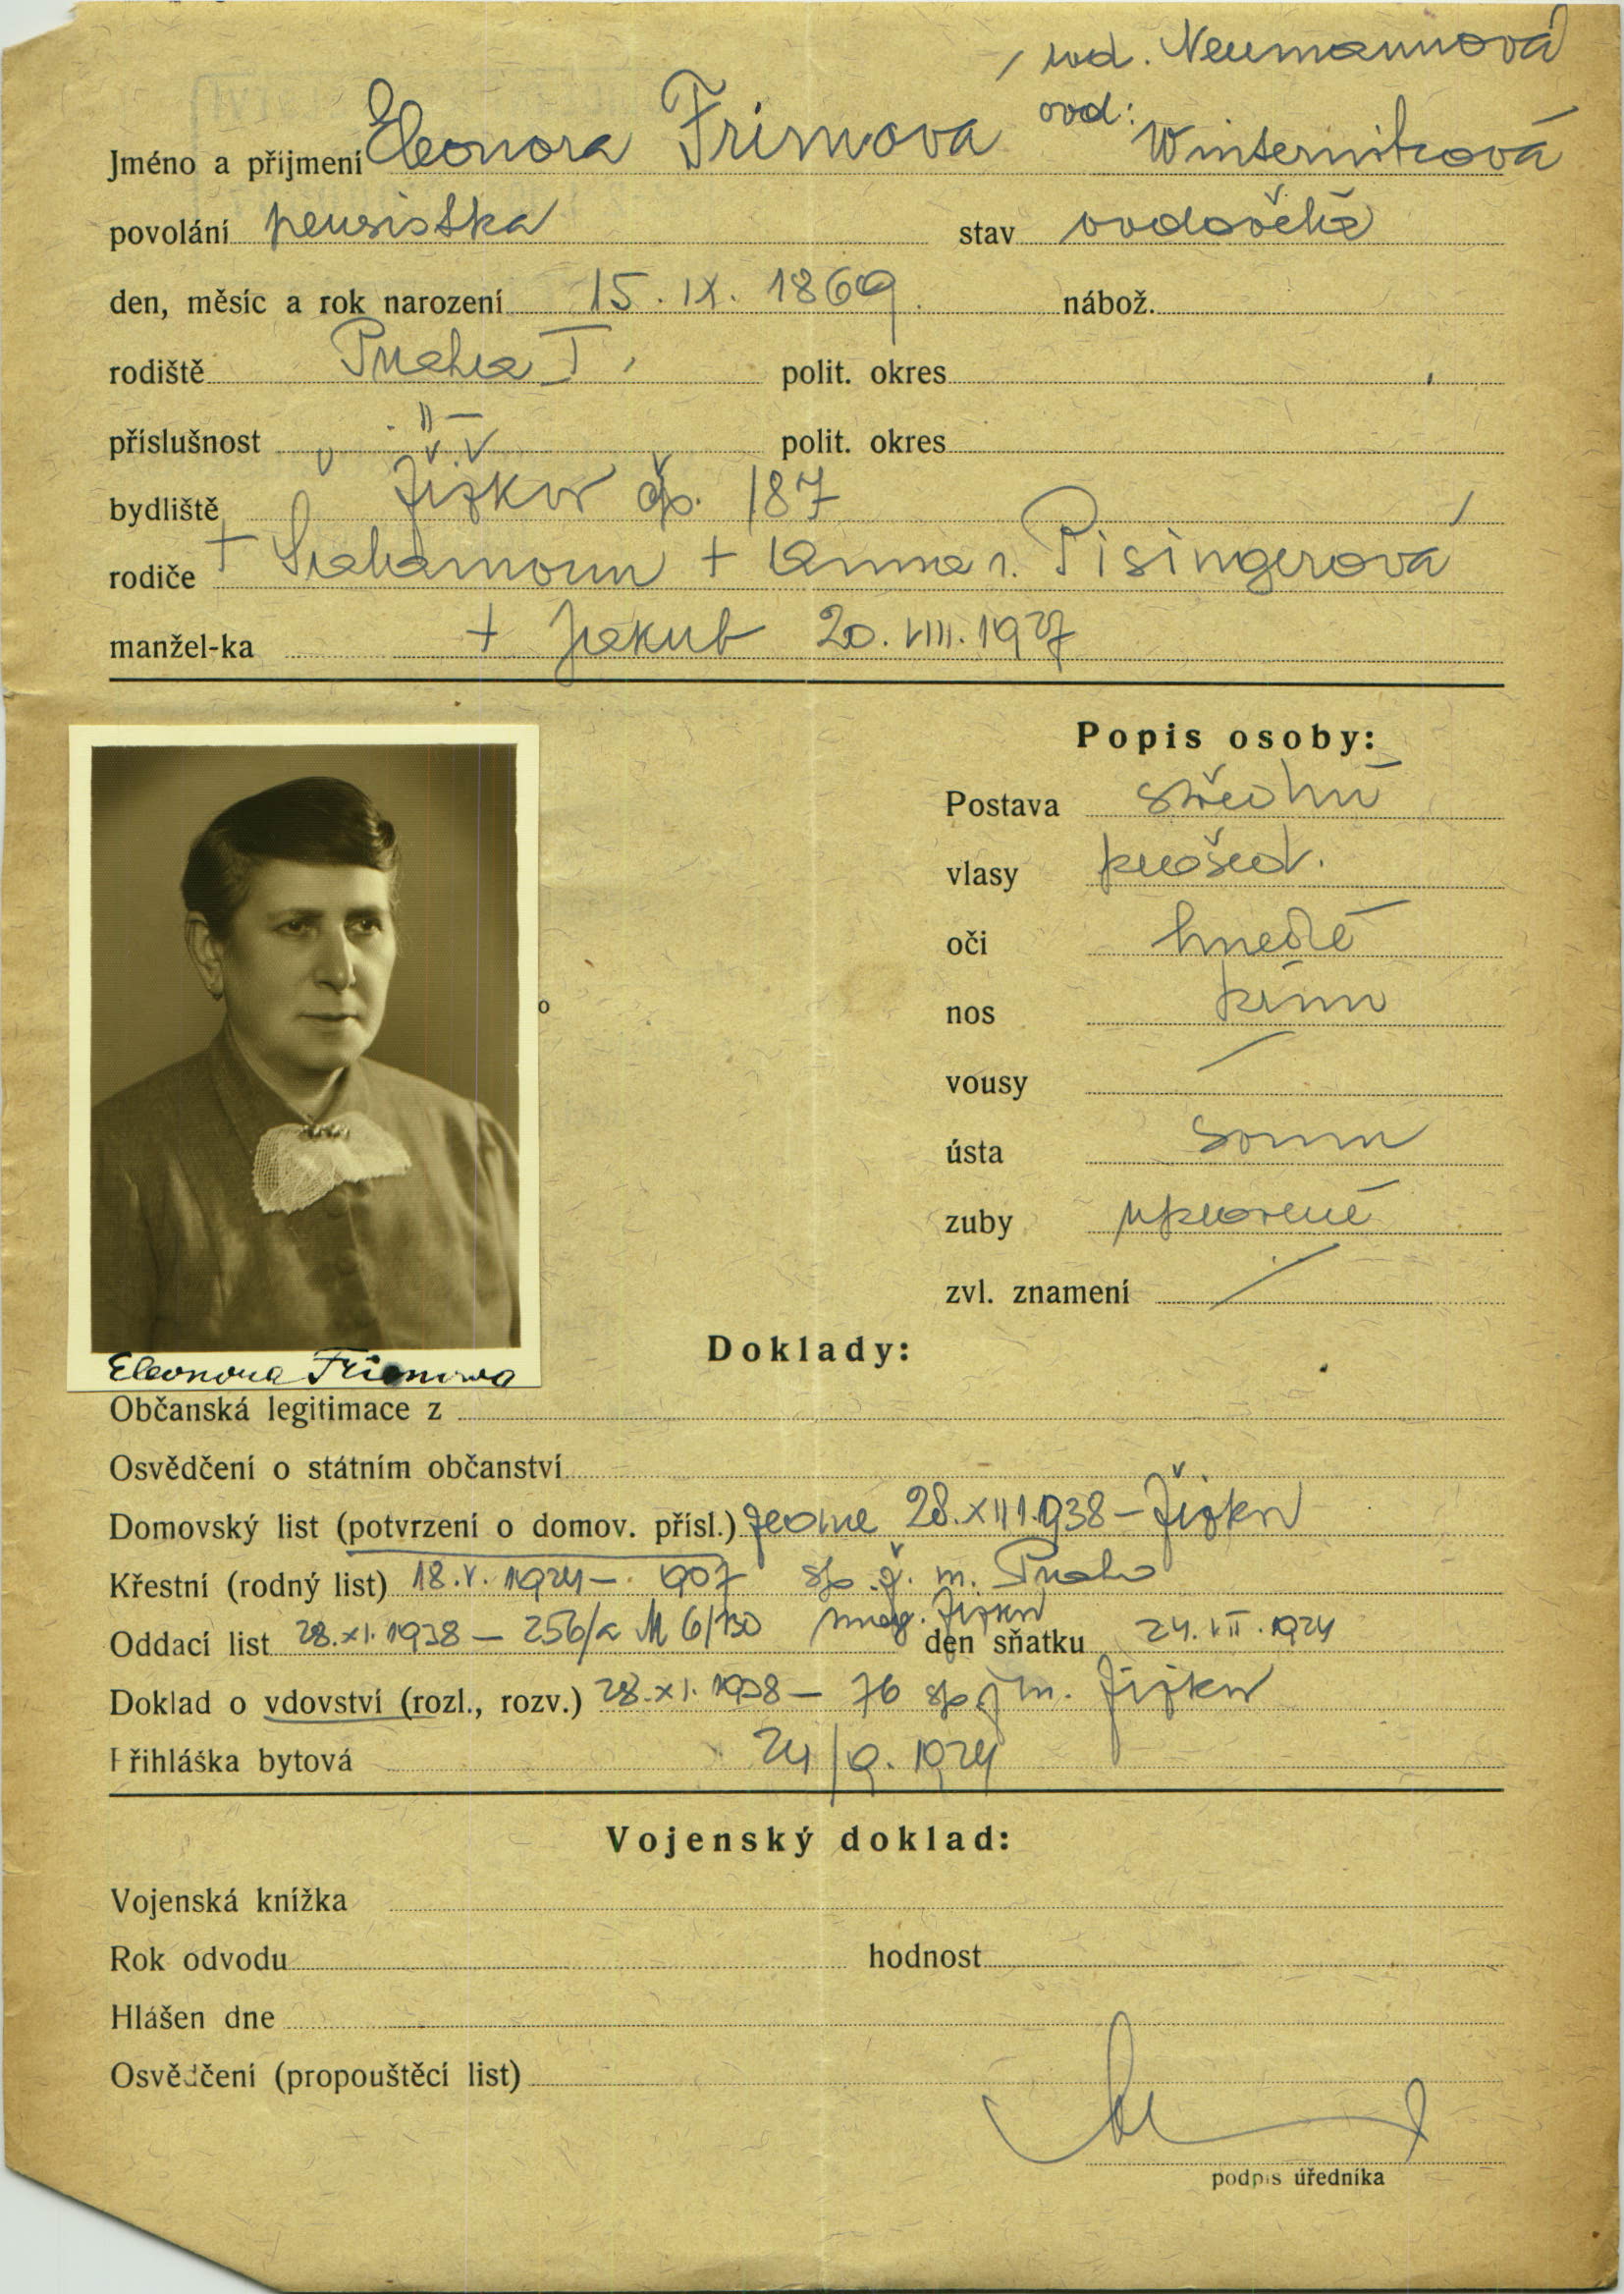 / roz. Neumannová
Jméno a příjmení Eleonora Frimová ovd: Winternitzová
povolání pensistka stav ovdovělá
den, měsíc a rok narození 15. IX. 1869. nábož.
rodiště Praha I. polit. okres
příslušnost -"- polit. okres
bydliště Žižkov čp. 187
rodiče + Salamoun + Anna r. Pisingerová
manžel-ka + Jakub 20. VIII. 1927
Popis osoby:
Postava střední
vlasy prošed.
oči hnědé
nos přím
vousy
ústa soum
zuby upravené
zvl. znamení
Eleonora Frimova
Doklady:
Občanská legitimace z
Osvědčení o státním občanství
Domovský list (potvrzení o domov. přísl.) ze dne 28. XII 1938 – Žižkov
Křestní (rodný list) 18. V. 1924 – 907 m. Praha
Oddací list 28. XI. 1938 – 256/a M 6/130 mag. Žižkov den sňatku 24. VII. 1924
Doklad o vdovství (rozl., rozv.) 28. XI. 1938 – 76 m. Žižkov
Přihláška bytová 24/9. 1924
Vojenský doklad:
Vojenská knížka
Rok odvodu hodnost
Hlášen dne
Osvědčení (propouštěcí list)
podpis úředníka